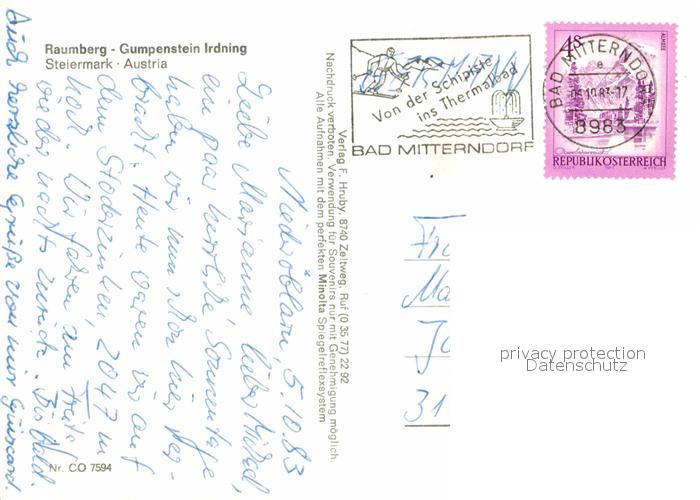 Raumberg - Gumpenstein Irdning
Steiermark · Austria
Niederöblarn, 5.10.83
Liebe Marianne, lieber
ein paar herrliche Sonnentage
haben wir nun schon hier
Heute waren wir auf
dem Stoderzinken, 2047 m
hoch. Wir fahren am Freitag
wieder nachts zurück. Bis bald.
Auch herzliche Grüße von
Nr. CO 7594
Verlag F. Hruby, 8740 Zeltweg, Ruf (0 35 77) 22 92
Nachdruck verboten. Verwendung für Souvenirs nur mit Genehmigung möglich.
Alle Aufnahmen mit dem perfekten Minolta Spiegelreflexsystem
Von der Schipiste
ins Thermalbad
BAD MITTERNDORF
BAD MITTERNDORF
e
10.83-17
8983
4S
ALMSEE
REPUBLIK ÖSTERREICH
Fr
Ma
Jo
31
privacy protection
Datenschutz